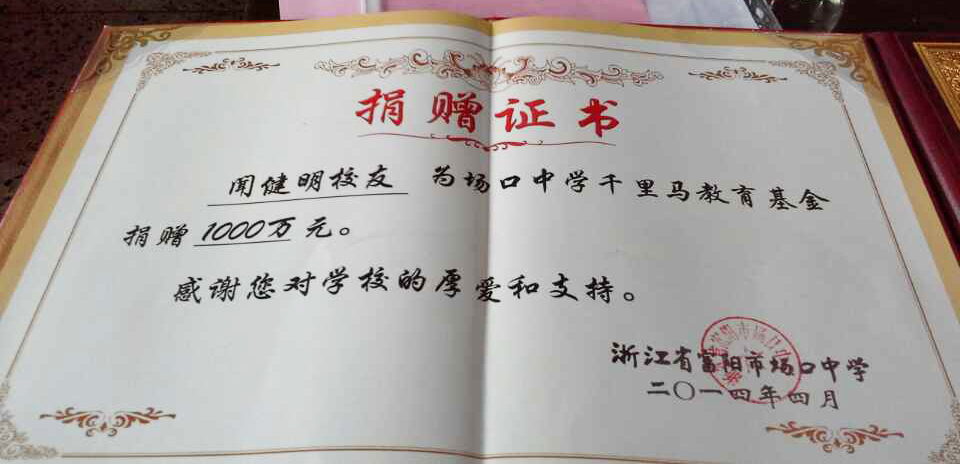 捐赠证书
闻健明校友 为场口中学千里马教育基金
捐赠 1000万 元。
感谢您对学校的厚爱和支持。
浙江省富阳市场口中学
二〇一四年四月